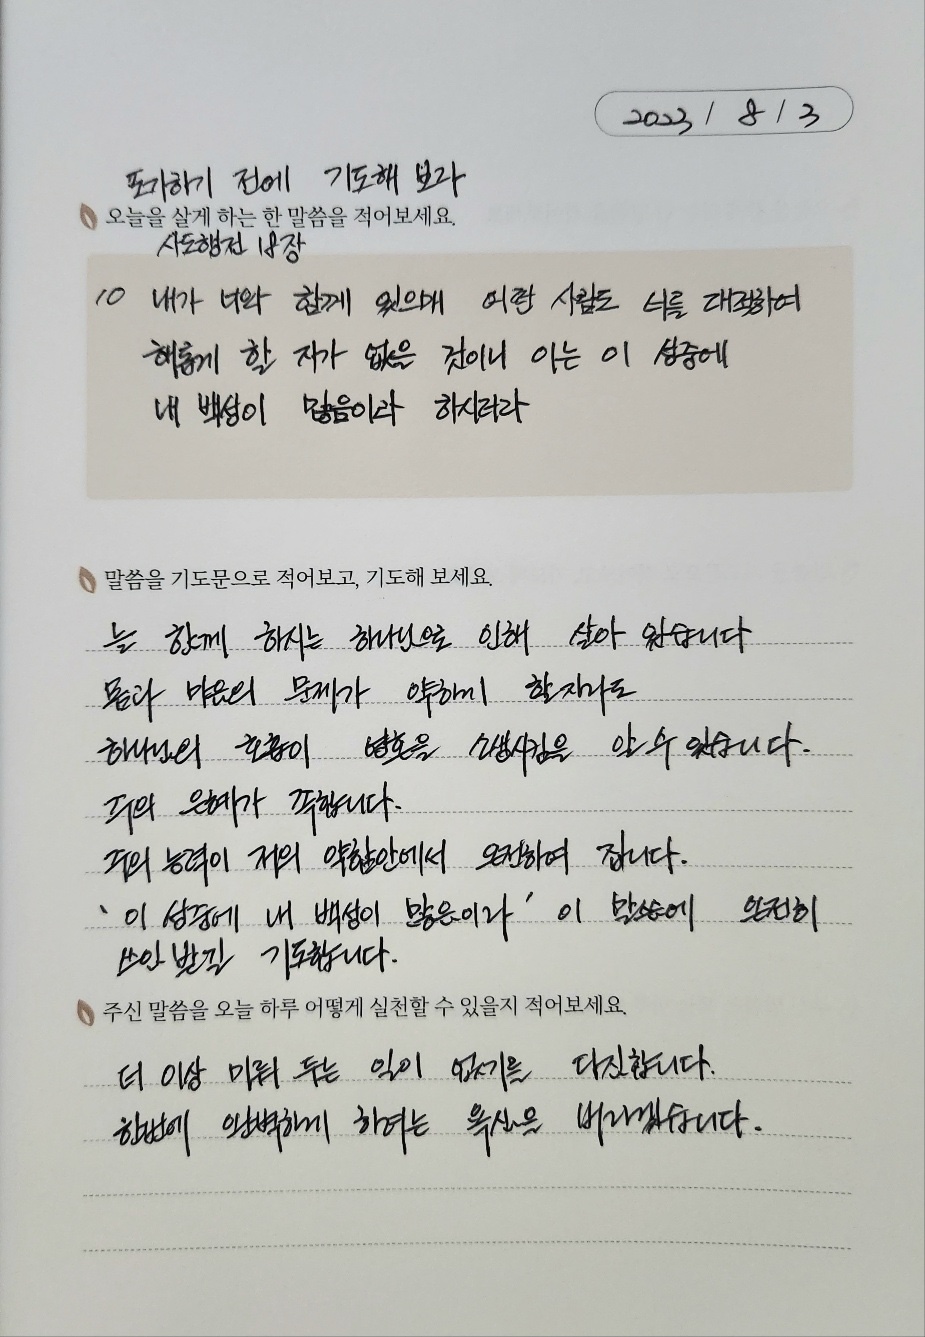 2023 / 8 / 3
포기하기 전에 기도해 보라
오늘을 살게 하는 한 말씀을 적어보세요.
사도행전 18장
10 내가 너와 함께 있으매 어떤 사람도 너를 대적하여
해롭게 할 자가 없을 것이니 이는 이 성중에
내 백성이 많음이라 하시더라
말씀을 기도문으로 적어보고, 기도해 보세요.
늘 함께 하시는 하나님으로 인해 살아 왔습니다
몸과 마음의 문제가 약하게 할지라도
하나님의 호흡이 영혼을 소생시킴을 알 수 있습니다.
주의 은혜가 족합니다.
주의 능력이 저의 약함안에서 온전하여 집니다.
'이 성중에 내 백성이 많음이라' 이 말씀에 온전히
쓰임 받길 기도합니다.
주신 말씀을 오늘 하루 어떻게 실천할 수 있을지 적어보세요.
더 이상 미뤄 두는 일이 없기를 다짐합니다.
한번에 완벽하게 하려는 욕심을 버리겠습니다.